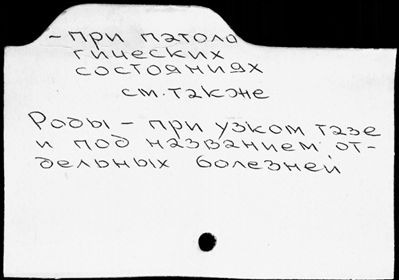 - при патоло
гических
состояниях
см. также
Роды - при узком тазе
и под названием от-
дельных болезней